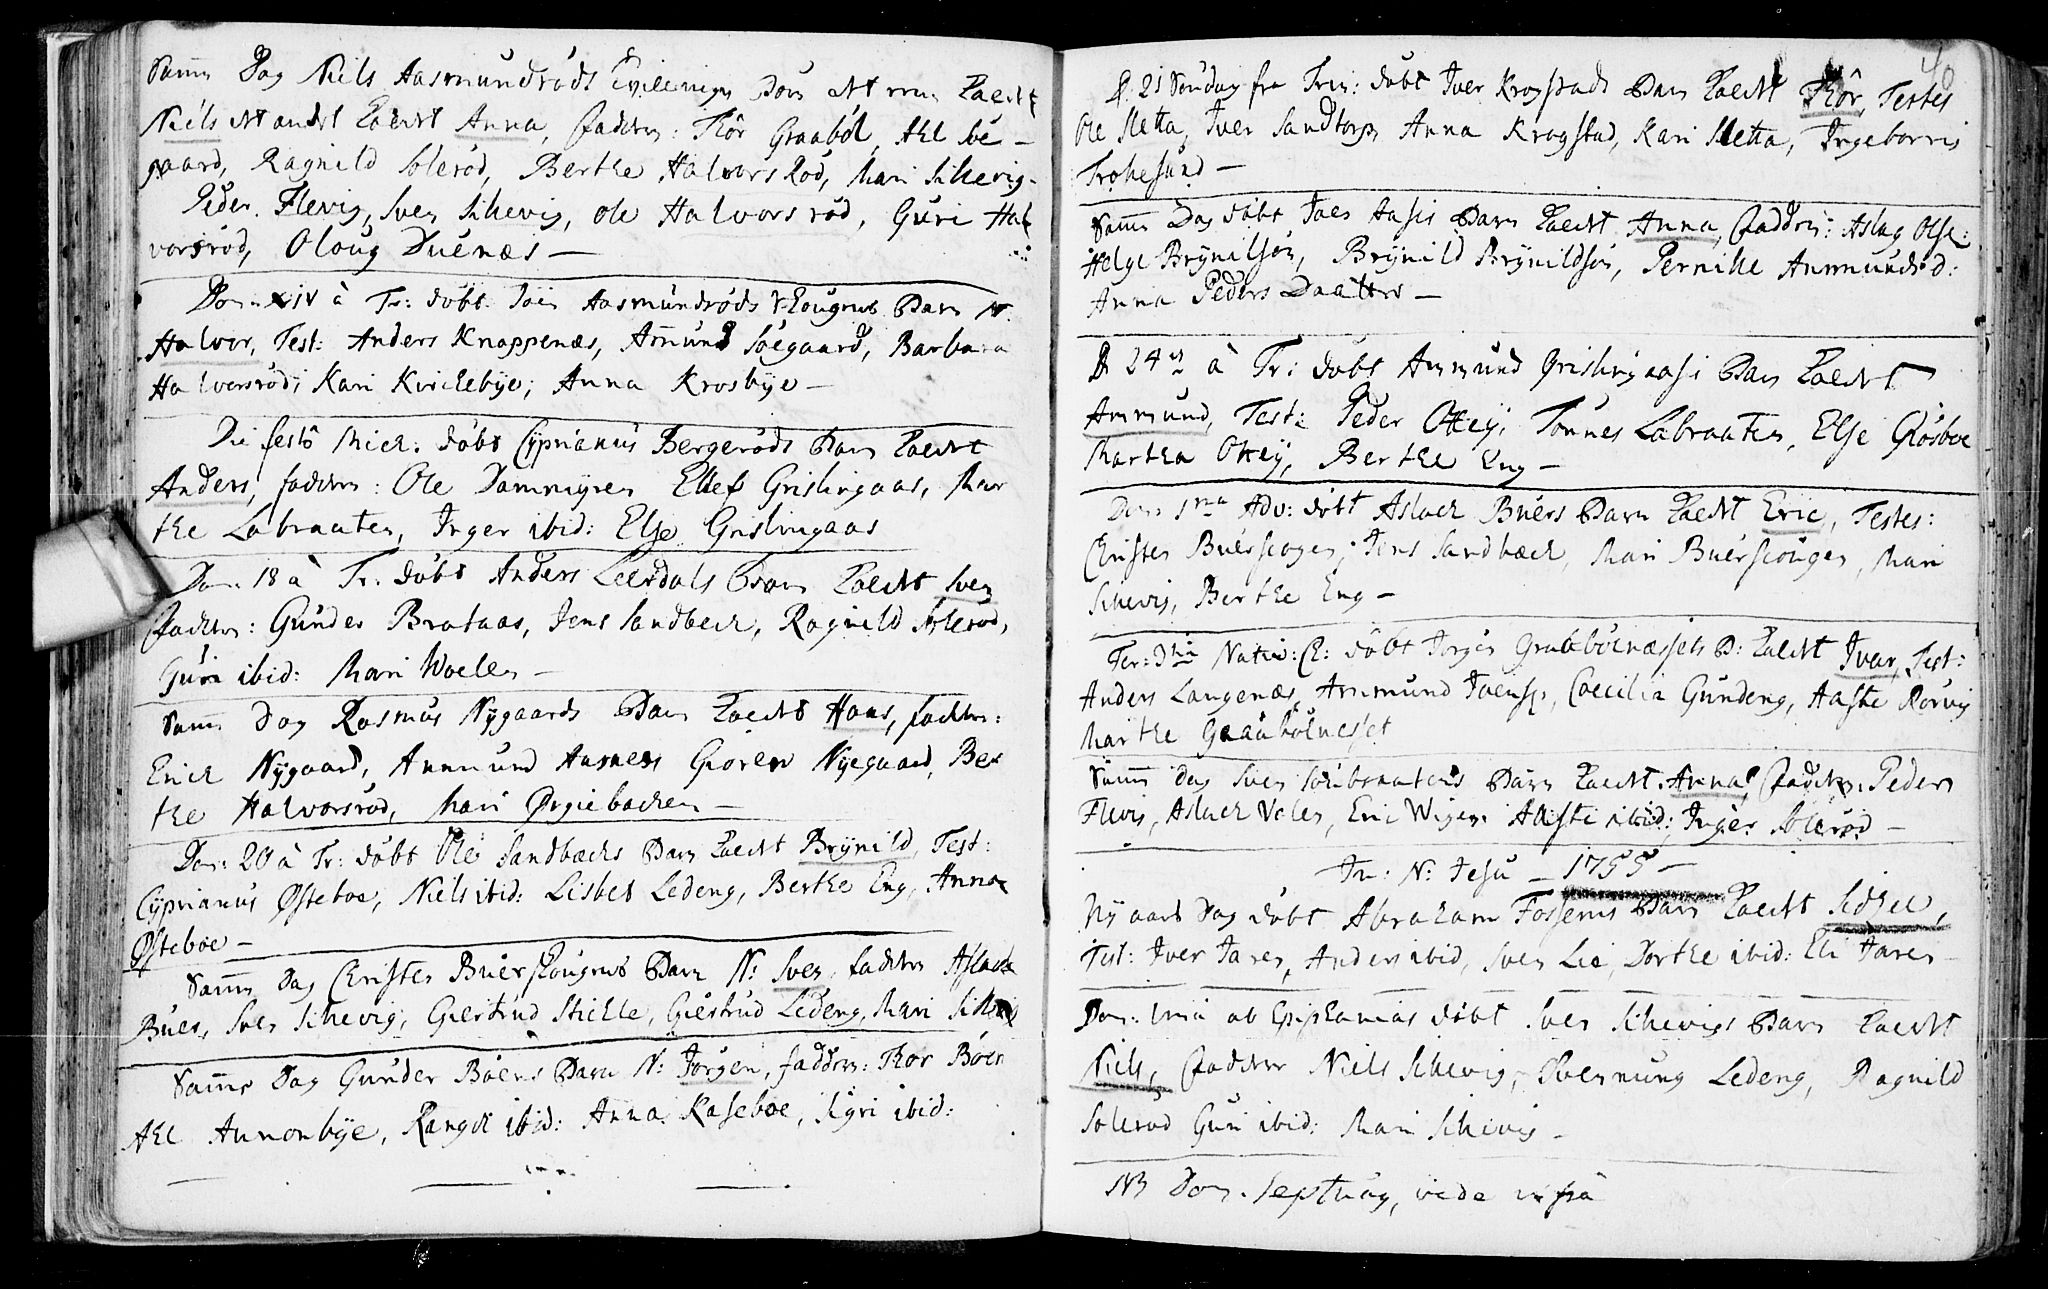 Samme Dag Niels Aasmundröds Tvillinger Döbt det eene kaldt
Niels det andet kaldt Anna, Faddere: Thór Graaböl, Abl Sö-
gaard, Ragnild Solerød, Berthe Halvorsrød, Mari Schevig.
Peder Flevig, Sven Schevig, Ole Halvorsrød, Guri Hal
vorsrød, Oloug Duenæs —
Dom: XIV à Tr: döbt Joen Aasmundröds Skougens Barn N.
Halvor, Test: Anders Knappenæs, Amund Söegaard, Barbara
Halvorsröd, Kari Kirckebye, Anna Krosbye —
Die festo Mich: döbt Cyprianus Bergeröds Barn kaldt
Anders, faddere: Ole Dammyren Ellef Grislingaas, Mar
the Labraaten, Inger ibid: Else Grislingaas
Dom: 18 à Tr: döbt Anders Leerdals Barn kaldt Sven
Faddere: Gunder Brataas, Jens Sandbeck, Ragnild Solerød,
Guri ibid: Mari Woelen —
Samme Dag Rasmus Nygaards Barn kaldt Hans, faddere:
Erick Nygaard, Ammund Aasnæs Gioren Nyegaard, Ber
the Halvorsröd, Mari Ørgiebachen —
Dom: 20 à Tr: döbt Ole Sandbæcks Barn kaldt Brynild, Test:
Cyprianus Østeboe, Niels ibid: Lisbet Ledeng, Berthe Eng, Anna
Østeboe —
Samme Dag Christen Buerskougens Barn N: Sven, faddere Aslach
Buer, Sven Schevig, Giertrud Stichle, Giertrud Ledeng, Mari Schevig
Samme Dag Gunder Böens Barn N: Jörgen, faddere: Thor Böen
Abl Annonbye, Rangdi ibid: Anna Kaseboe, Sigri ibid:
D. 21 Söndag fra Trin: döbt Iver Krogstads Barn kaldt Thór, Testes
Ole Sletta, Iver Sandtorp, Anna Krogstad, Kari Sletta, Ingeborrig
Trohesund —
Samme Dag döbt Joen Aasis Barn kaldt Anna, Faddere: Aslag Olse:
Helge Brynilsön, Brynild Brynildsön, Pernille Ammundsd:
Anna Peders Daatter —
D 24de à Tr: döbt Ammund Grislingaasis Barn kaldt
Ammund, Test: Peder Ottey, Tönnes Labraaten, Else Glosboe
Martha Ottey, Berthe Eng —
Dom 1ma Adv: döbt Aslach Buers Barn kaldt Eric, Testes:
Christen Buerskogen, Jens Sandbæck, Mari Buerskougen, Mari
Schevig, Berthe Eng —
Fer: 3tia Nativ: C: döbt Jörgen Graabölnæssets B: kaldt Ivar, Test:
Anders Langenæs, Ammund Joensø, Cæcilia Gundeng, Aaste Rörvig
Marthe Graabölnesset
Samme dag Sven Solibraatens Barn kaldt Anna, Faddere: Peder
Flevig, Aslach Valen, Eric Wigen Aaste ibid: Inger Solerød —
In: N: Jesu — 1755 —
Ny aars Dag döbt Abraham Fossems Barn kaldt Sidzel,
Test: Iver Jaren, Anders ibid, Sven Lie, Dorthe ibid: Eli Jaren —
Dom: 1ma ab Epiphanias döbt Sven Schevigs Barn kaldt
Niels, Faddere Niels Schevig, Svennung Ledeng, Ragnild
Solerød Guri ibid: Mari Schevig —
NB Dom. Septuag, vide infrà